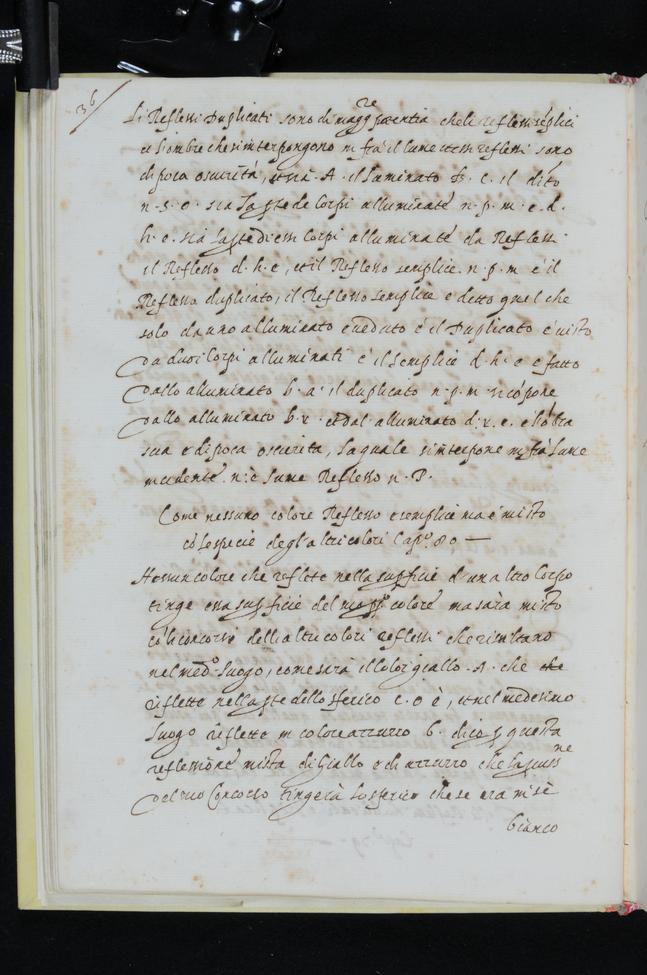 36
Li Reflessi Duplicati sono di magg.re potentia che li reflessi semplici
et l'ombre che s'interpongono in fra il lume et essi reflessi sono
di poca oscurità, et sia .A. il luminato b. c. il ditto
n. s. o. sia la pte de Corpi alluminate n. p. m. e. d.
h. o. sia la pte di essi Corpi alluminate da Reflessi
il Reflesso d. h. e, et il Reflesso semplice. n. p. m è il
Reflesso duplicato, il Reflesso semplice e detto quel che
solo da uno alluminato e veduto è il Duplicato è visto
da duoi Corpi alluminati è il semplice d. h. e e fatto
dallo alluminato b. a. il duplicato n. p. m. si cõpone
dallo alluminato b. v. et dal alluminato d: v. e. e l'õbra
sua e di poca oscurita, la quale s'interpone infrà lume
incidente. n: e lume Reflesso n. P.
Come nessuno colore Reflesso e semplice ma è misto
cõ le specie degl'altri colori Cap.o 80 —
Nessun colore che reflette nella supficie d'un altro Corpo
tinge essa supficie del suo pp.o colore ma sarà misto
cõ li concorsi delli altri colori reflessi che risultano
nel med.o luogo, come sarà il color giallo .A. che che
riflette nella pte dello sferico c. o è, et nel medesimo
luogo riflette in colore azzurro b. dico p questa
reflessione mista di Giallo e di azzurro che la pcuss.ne
del suo Concorso tingerà lo sferico che se era in sè
bianco